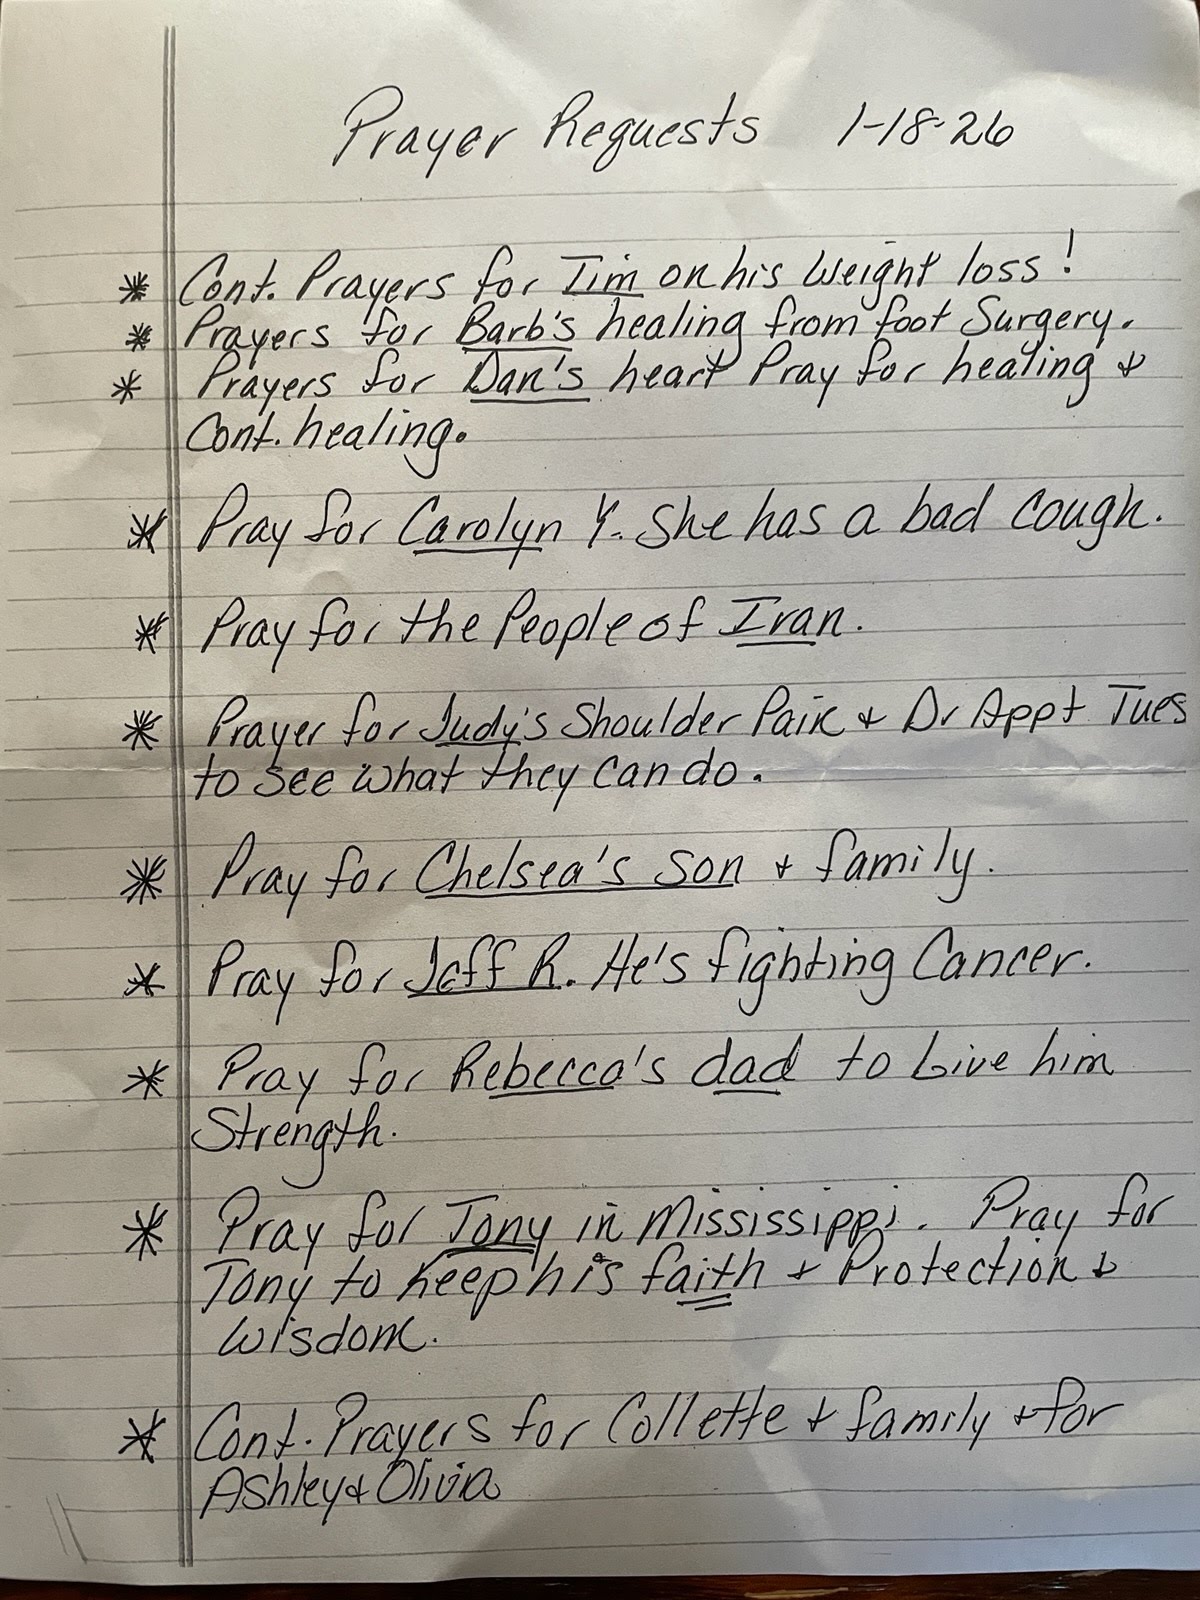 Prayer Requests 1-18-26
* Cont. Prayers for Tim on his Weight loss!
* Prayers for Barb's healing from foot Surgery.
* Prayers for Dan's heart Pray for healing &
Cont. healing.
* Pray for Carolyn Y. She has a bad cough.
* Pray for the People of Iran.
* Prayer for Judy's Shoulder Pain & Dr Appt Tues
to see what they can do.
* Pray for Chelsea's son & family.
* Pray for Jeff R. He's fighting Cancer.
* Pray for Rebecca's dad to Give him
Strength.
* Pray for Tony in Mississippi. Pray for
Tony to Keep his faith & Protection &
wisdom.
* Cont. Prayers for Collette & family & for
Ashley & Olivia